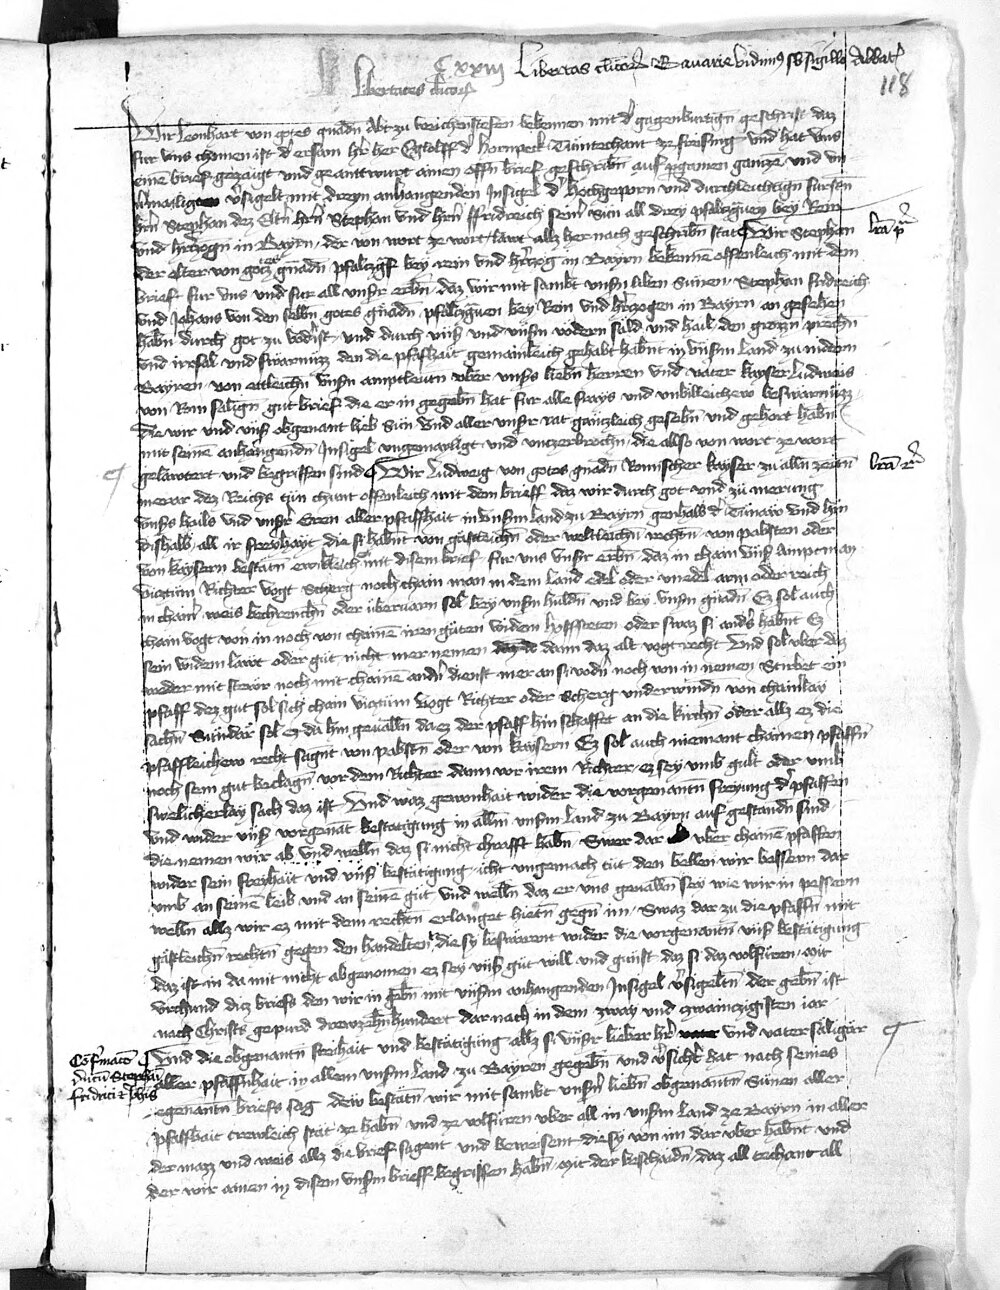 Cxxiij Libertas cleri Bavarie vidimus sub sigillo Abbatis
118
libertates cleri
Wir Leonhart von gotes gnadn Abt zu Weichensteffen bekennen mit der gagenburtign geschrift daz
fur uns chomen ist der ersam her her Eglolff der Hornpeck Tumtechant ze freising und hat uns
eine brief gezaigt und geantwurt ainen offn brief geschribn auf pgamen gancze und un
vermayligten versigelt mit dreyn anhangenden Insigel der hochgeporn und durchleichtign fursten
hern Stephan dez Eltn hern Stephan und hern ffridreich seiner Sun all drey pfalczgraven bey Rein
und herczogn in Bayrn, der von wort ze wort lawt allz her nach geschribn stat Wir Stephan
der elter von gotes gnadn pfalczgf bey rein und herczog in Bayrn bekennen offenleich mit dem
brief fur uns und fur all unser erbn daz wir mit sambt unsn liben Sünen Stephan fridreich
und Johans von den selbn gotes gnadn pfalczgraven bey Rein und herczogen in Bayrn an gesehen
habn durch got zu vodrist und durch unser und unsern vodern säld und hail den grozzn prechn
und irrsal und swärnuzz den die pfafhait gemainleich gehabt habnt in unsern land zu nidern
Bayren von ettleichn unsern amptleutn uber unsers liebn herren und vater kayser Ludweis
von Rom säligen gut brief die er in gegebn hat fur alle frays und unbilleichew beswärnüzz
die wir und unser obgenant lieb Sün und aller unser rat gänczleich gesehn und gehort habn
mit seinem anhangendn Insigel ungemayligt und unczerbrochn die allso von wort ze wort
gelawtert und begriffen sind Wir Ludweig von gotes gnadn Romischer kayser zu alln zeitn
merar dez Reichs tün chunt offenleich mit dem brieff daz wir durch got und zü merung
unsers hails und unser Eren aller pfaffhait in unserm land zu Bayrn genhalb der Tünaw und hie
dishalb all ir freyhayt die si habnt von gaistleichn oder weltleichn rechten von pabsten oder
von kaysern bestätn ewikleich mit disem brief fur uns unser erbn daz in chain unser Amptman
Viztüm Richter Vogt Scherg noch chain man in dem land edel oder unedel arm oder reich
in chainer weis bechrenchn oder übervarn sol bey unsern hulden und bey unsern gnadn Ez sol auch
chain vogt von in noch von chainem iren güten widem hoffsteten oder swaz si anders habnt Ez
sein widem läwt oder güt nicht mer nemen dann daz alt vogtrecht Und sol uber daz
weder mit stewr noch mit chainem andern dienst mer an si vodern noch von in nemen Stirbet ein
pfaff dez gut sol sich chain viztüm Vogt Richter oder Scherg underwindn von chainerlay
sachn Sunder sol ez da hin gevalln da ez der pfaff hin schaffet an die kirchn oder allz ez die
pfaffleichew recht sagnt von pabstn oder von kaysern Ez sol auch niemant chainen pfaffn
noch sein gut beclagn vor dem Richter dann vor irem Richter ez sey umb gult oder umb
swelicherlay sach daz ist Und waz gewonhait wider die vorgenantn freyung der pfaffen
und wider unser vorgenät bestätigung in allm unserm land zu Bayrn auf gestandn sind
die nemen wir ab und welln daz si nicht chrafft habn Swer dar uber chainem pfaffen
wider sein freyhait und unser bestätigung icht ungemach tüt den wellen wir pessern dar
umb an seinem leib und an seinem güt und welln daz er uns gevalln sey wie wir in pessern
welln allz wir ez mit dem rechtn erlanget hietn gegn im Swaz dar zu die pfaffn mit
gaistleichn rechtn gegen den handelten die sy beswärent wider die vorgenantn unser bestätigung
daz ist in da mit nicht abgenomen ez sey unser güt will und gunst daz si daz volfüren Mit
urchund dicz briefs den wir in gebn mit unserm anhangenden Insigel versigeltn der gebn ist
nach Christs gepurd drewzehnhundert dar nach in dem zway und zwainzigisten iar
Und die obgenantn freihait und bestätigung allz si unser lieber her und vater säliger
aller pfaffhait in allem unserm land zu Bayren gegebn und versichert hat nach seines
egenantn briefs sag dew bestätn wir mit sambt unsern liebn obgenantn Sünen aller
pfaffhait trewleich stät ze habn und ze volfüren uber all in unserm land ze Bayrn in aller
der mazz und weis allz die brief sagent und beweisent die sy von im dar uber habnt und
der wir ainen in disem unserm brieff begriffen habn Mit der beschaidn daz all techant all